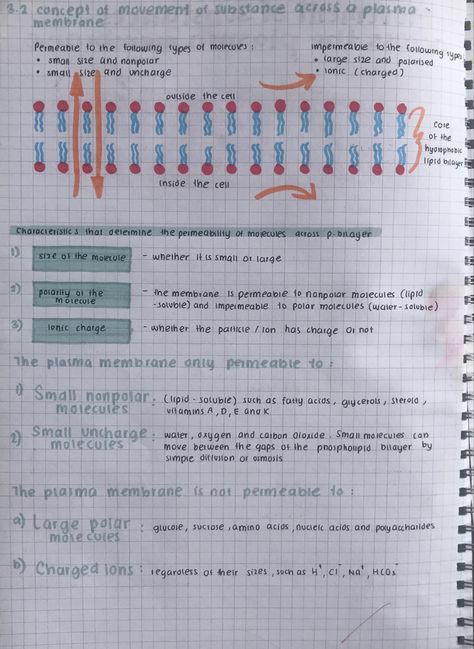 3.2 concept of movement of substance across a plasma
membrane
Permeable to the following types of molecules :
• small size and nonpolar
• small size and uncharge
impermeable to the following types
• large size and polarised
• ionic (charged)
outside the cell
core
of the
hydrophobic
lipid bilayer
inside the cell
Characteristics that determine the permeability of molecules across p-bilayer
1) size of the molecule - whether it is small or large
2) polarity of the molecule - the membrane is permeable to nonpolar molecules (lipid
-soluble) and impermeable to polar molecules (water-soluble)
3) ionic charge - whether the particle / ion has charge or not
The plasma membrane only permeable to :
1) Small nonpolar molecules : (lipid-soluble) such as fatty acids, glycerols, steroid,
vitamins A, D, E and K
2) Small uncharge molecules : water, oxygen and carbon dioxide. Small molecules can
move between the gaps of the phospholipid bilayer by
simple diffusion or osmosis
The plasma membrane is not permeable to :
a) Large polar molecules : glucose, sucrose, amino acids, nucleic acids and polyaccharides
b) Charged ions : regardless of their sizes, such as H⁺, Cl⁻, Na⁺, HCO₃⁻